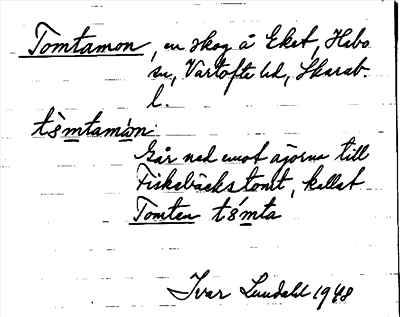 Tomtamon, en skog å Eket, Habo
sn, Vartofte hd, Skarab.
l.
tòmtamàn
Går ned emot sjörna till
Fiskebäckstomt, kallat
Tomten tómta
Ivar Lundahl 1948